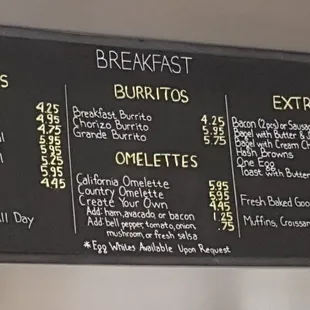 BREAKFAST
S
4.25
4.95
4.75
5.95
5.95
5.25
5.95
4.45
All Day
BURRITOS
Breakfast Burrito 4.25
Chorizo Burrito 5.95
Grande Burrito 5.75
OMELETTES
California Omelette 5.95
Country Omelette 5.95
Create Your Own 4.45
Add: ham, avacado, or bacon 1.25
Add: bell pepper, tomato, onion, .75
mushroom, or fresh salsa
*Egg Whites Available Upon Request
EXTR
Bacon (2pcs) or Sausa
Bagel with Butter & J
Bagel with Cream Ch
Hash Browns
One Egg
Toast with Butter
Fresh Baked Goo
Muffins, Croissa